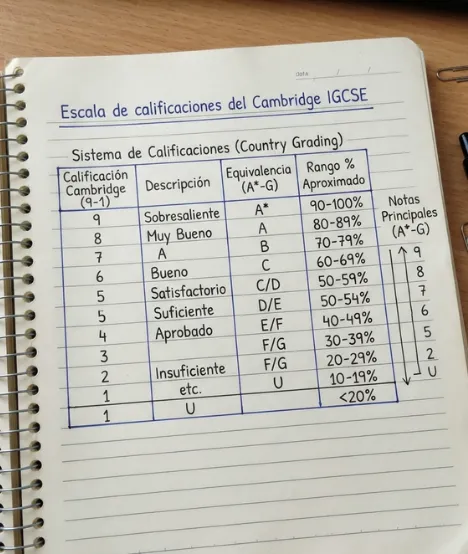 date / /
Escala de calificaciones del Cambridge IGCSE
Sistema de Calificaciones (Country Grading)
Calificación Cambridge (9-1) Descripción Equivalencia (A*-G) Rango % Aproximado
9 Sobresaliente A* 90-100%
8 Muy Bueno A 80-89%
7 A B 70-79%
6 Bueno C 60-69%
5 Satisfactorio C/D 50-59%
5 Suficiente D/E 50-54%
4 Aprobado E/F 40-49%
3 F/G 30-39%
2 Insuficiente F/G 20-29%
1 etc. U 10-19%
1 U <20%
Notas
Principales
(A*-G)
9
8
7
6
5
2
U